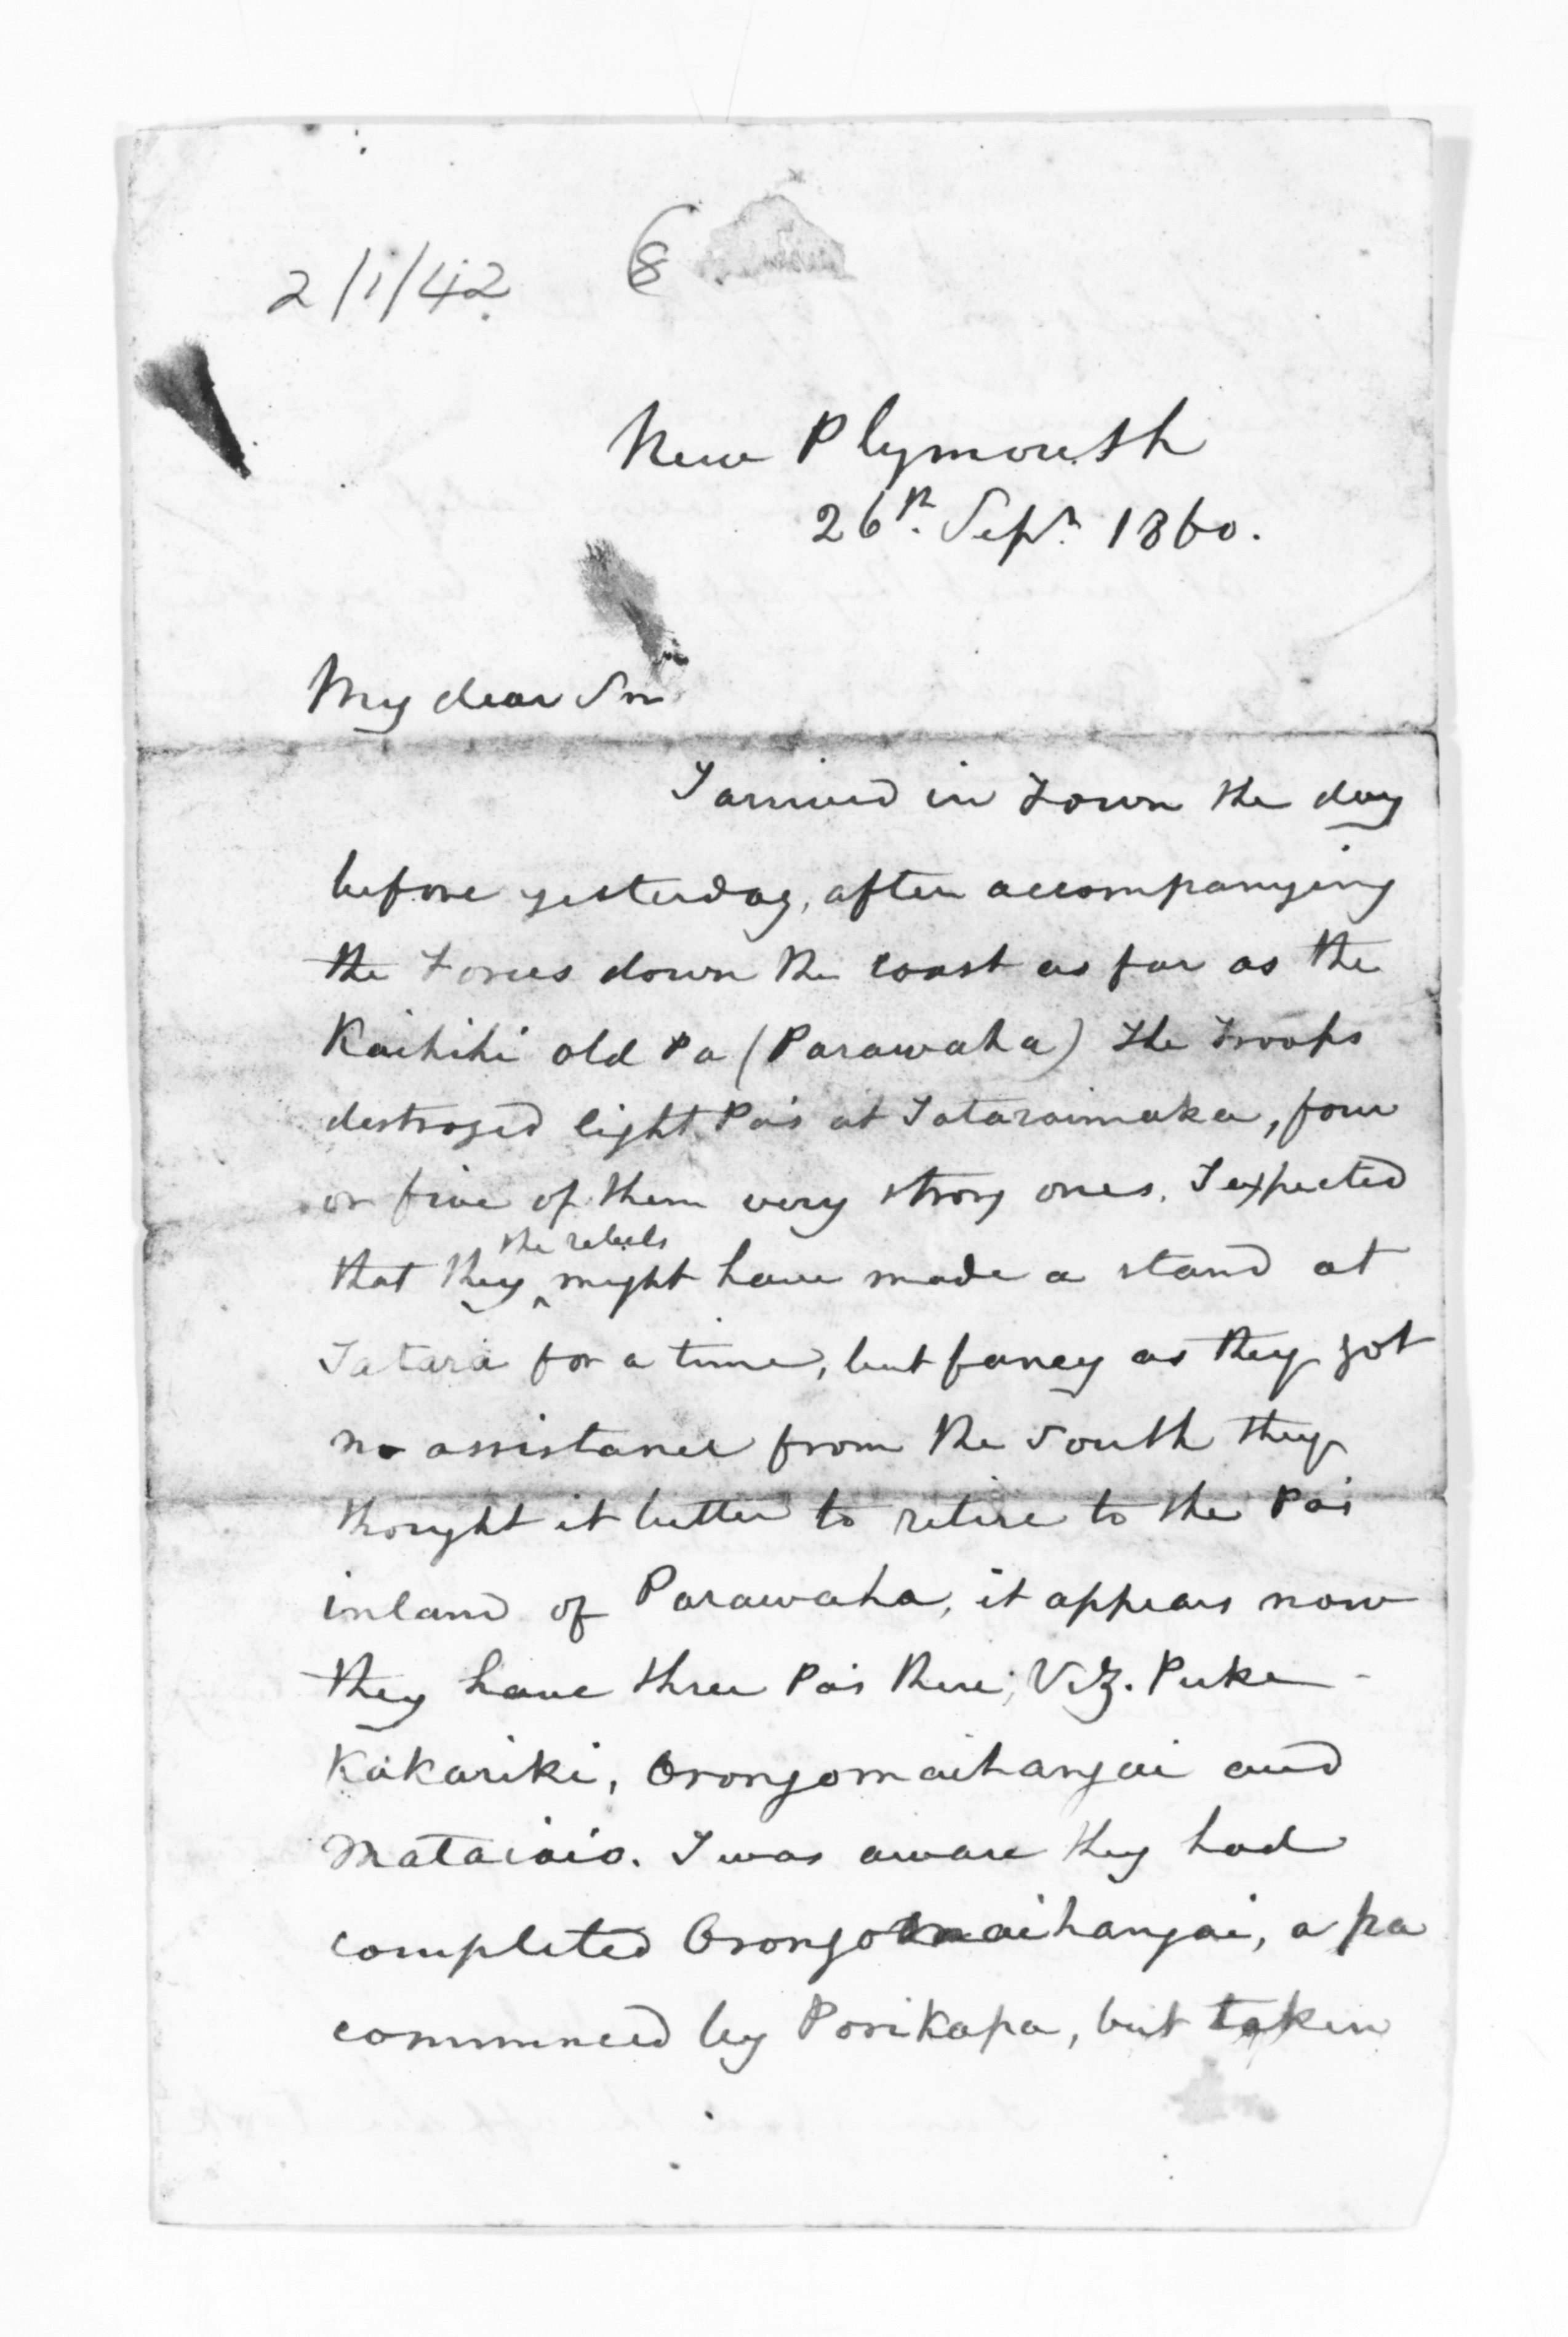 2/1/42
8
New Plymouth
26th. Sepr. 1860.
My dear Sir
I arrived in Town the day
before yesterday, after accompanying
the Forces down the coast as far as the
Kaihihi old Pa (Parawaha) The Troops
destroyed eight Pa's at Tataraimaka, four
or five of them very strong ones. I expected
the rebels
that they might have made a stand at
Tatara for a time, but fancy as they got
no assistance from the South they
thought it better to retire to the Pas
inland of Parawaha, it appears now
they have three Pas there; Viz. Puke-
Kakariki, Orongomaihangai and
Mataiaio. I was aware they had
completed Orongomaihangai, a pa
commenced by Porikapa, but taken